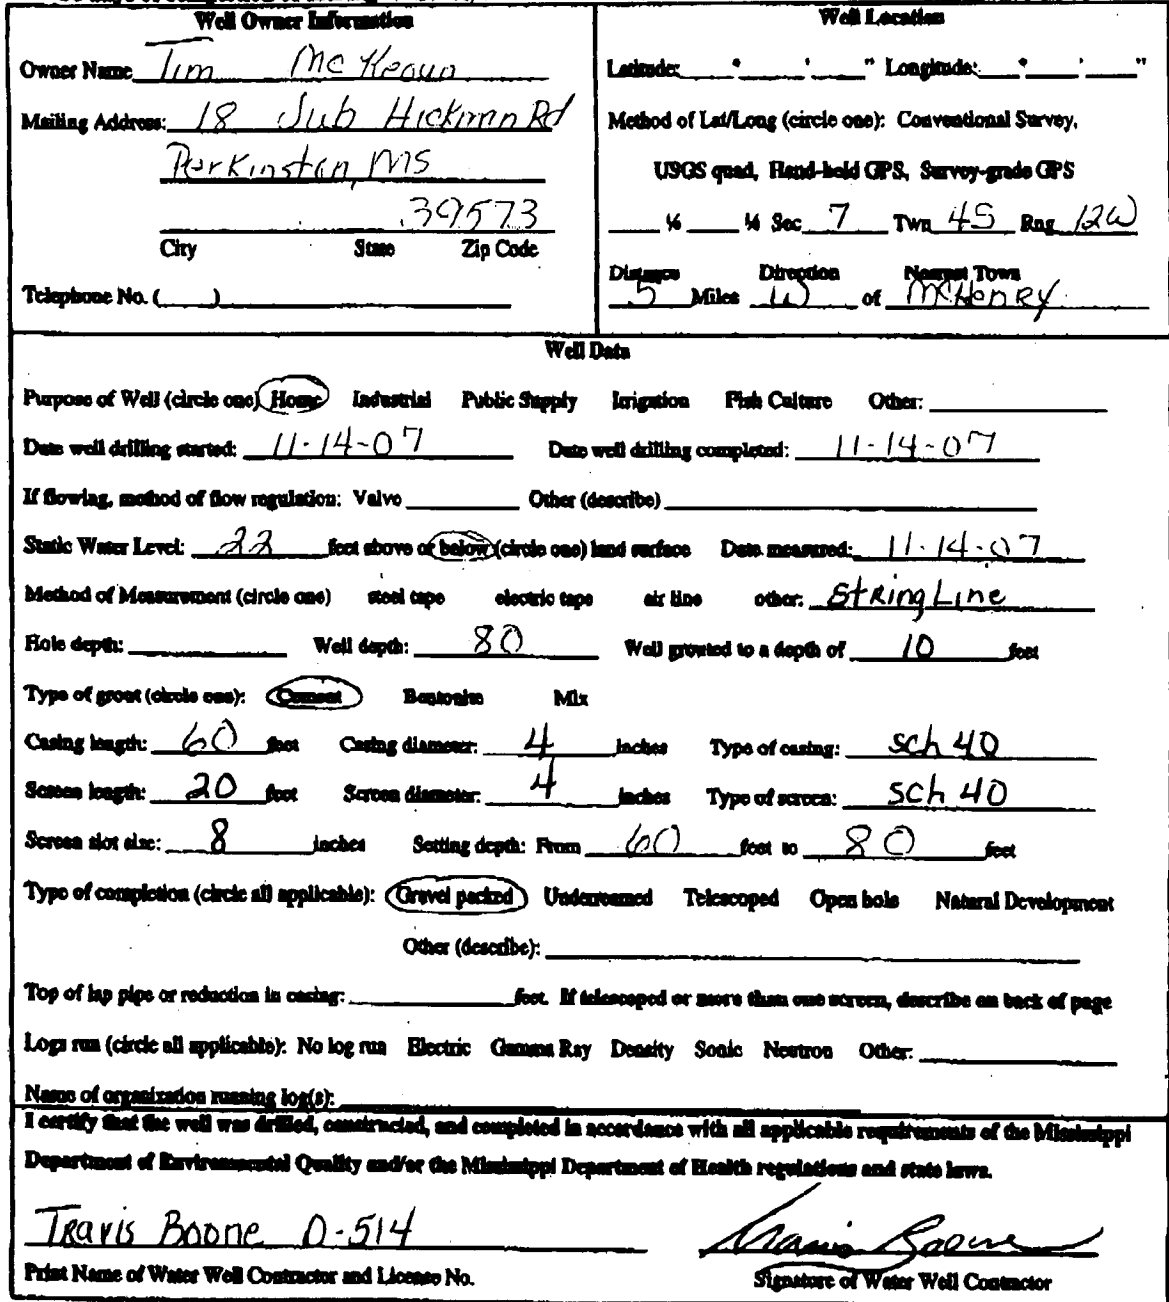 Well Owner Information
Owner Name Tim McKeown
Mailing Address: 18 Sub Hickman Rd
Perkinston, MS
39573
City State Zip Code
Telephone No. ( )
Well Location
Latitude: ° ' " Longitude: ° ' "
Method of Lat/Long (circle one): Conventional Survey,
USGS quad, Hand-held GPS, Survey-grade GPS
¼ ¼ Sec 7 Twn 4S Rng 12W
Distance Direction Nearest Town
5 Miles W of McHenry
Well Data
Purpose of Well (circle one) Home Industrial Public Supply Irrigation Fish Culture Other:
Date well drilling started: 11-14-07 Date well drilling completed: 11-14-07
If flowing, method of flow regulation: Valve Other (describe)
Static Water Level: 22 feet above or below (circle one) land surface Date measured: 11-14-07
Method of Measurement (circle one) steel tape electric tape air line other: String Line
Hole depth: Well depth: 80 Well grouted to a depth of 10 feet
Type of grout (circle one): Cement Bentonite Mix
Casing length: 60 feet Casing diameter: 4 inches Type of casing: sch 40
Screen length: 20 feet Screen diameter: 4 inches Type of screen: sch 40
Screen slot size: 8 inches Setting depth: From 60 feet to 80 feet
Type of completion (circle all applicable): Gravel packed Underreamed Telescoped Open hole Natural Development
Other (describe):
Top of lap pipe or reduction in casing: feet. If telescoped or more than one screen, describe on back of page
Logs run (circle all applicable): No log run Electric Gamma Ray Density Sonic Neutron Other:
Name of organization running log(s):
I certify that the well was drilled, constructed, and completed in accordance with all applicable requirements of the Mississippi
Department of Environmental Quality and/or the Mississippi Department of Health regulations and state laws.
Travis Boone 0-514
Travis Boone
Print Name of Water Well Contractor and License No.
Signature of Water Well Contractor